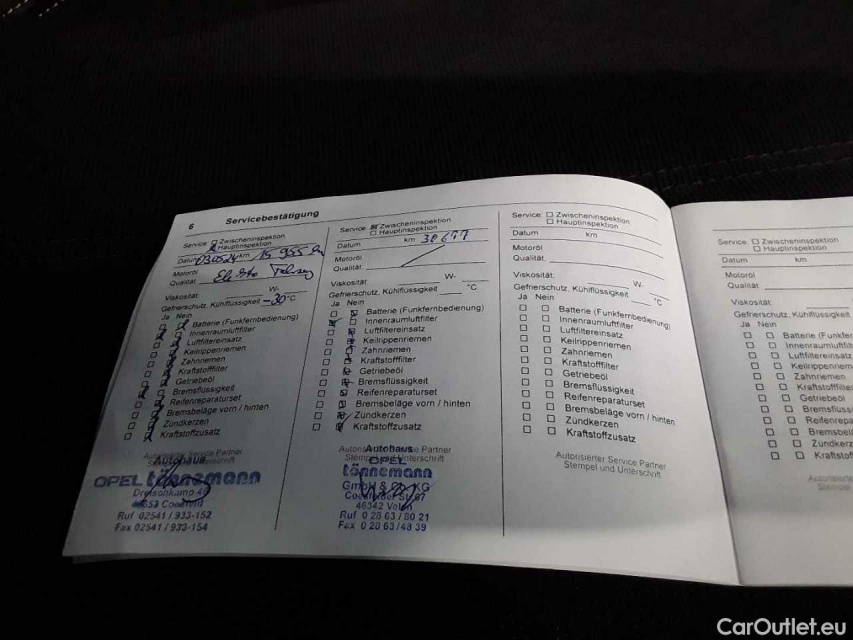 6 Servicebestätigung
Service: Zwischeninspektion
Hauptinspektion
Datum 03.05.24 km 15 955
Motoröl
Qualität Elektro
Viskosität W-
Gefrierschutz, Kühlflüssigkeit -30 °C
Ja Nein
Batterie (Funkfernbedienung)
Innenraumluftfilter
Luftfiltereinsatz
Keilrippenriemen
Zahnriemen
Kraftstofffilter
Getriebeöl
Bremsflüssigkeit
Reifenreparaturset
Bremsbeläge vorn / hinten
Zündkerzen
Kraftstoffzusatz
Autorisierter Service Partner
Stempel und Unterschrift
Autohaus
OPEL tönnemann
48653 Coesfeld
Ruf 02541 / 933-152
Fax 02541 / 933-154
Service: Zwischeninspektion
Hauptinspektion
Datum km
Motoröl
Qualität:
Viskosität: W-
Gefrierschutz, Kühlflüssigkeit °C
Ja Nein
Batterie (Funkfernbedienung)
Innenraumluftfilter
Luftfiltereinsatz
Keilrippenriemen
Zahnriemen
Kraftstofffilter
Getriebeöl
Bremsflüssigkeit
Reifenreparaturset
Bremsbeläge vorn / hinten
Zündkerzen
Kraftstoffzusatz
Autorisierter Service Partner
Stempel und Unterschrift
Autohaus
OPEL
tönnemann
GmbH & Co. KG
46342 Velen
Ruf 0 28 63 / 80 21
Fax 0 28 63 / 48 39
Service: Zwischeninspektion
Hauptinspektion
Datum km
Motoröl
Qualität:
Viskosität: W-
Gefrierschutz, Kühlflüssigkeit °C
Ja Nein
Batterie (Funkfernbedienung)
Innenraumluftfilter
Luftfiltereinsatz
Keilrippenriemen
Zahnriemen
Kraftstofffilter
Getriebeöl
Bremsflüssigkeit
Reifenreparaturset
Bremsbeläge vorn / hinten
Zündkerzen
Kraftstoffzusatz
Autorisierter Service Partner
Stempel und Unterschrift
Service: Zwischeninspektion
Hauptinspektion
Datum km
Motoröl
Qualität:
Viskosität:
Gefrierschutz, Kühlflüssigkeit
Ja Nein
Batterie (Funkfer
Innenraumluftfil
Luftfiltereinsatz
Keilrippenriemen
Zahnriemen
Kraftstofffilter
Getriebeöl
Bremsflüss
Reifenrepa
Bremsbel
Zündkerz
Kraftstof
Autorisier
Stempel
CarOutlet.eu